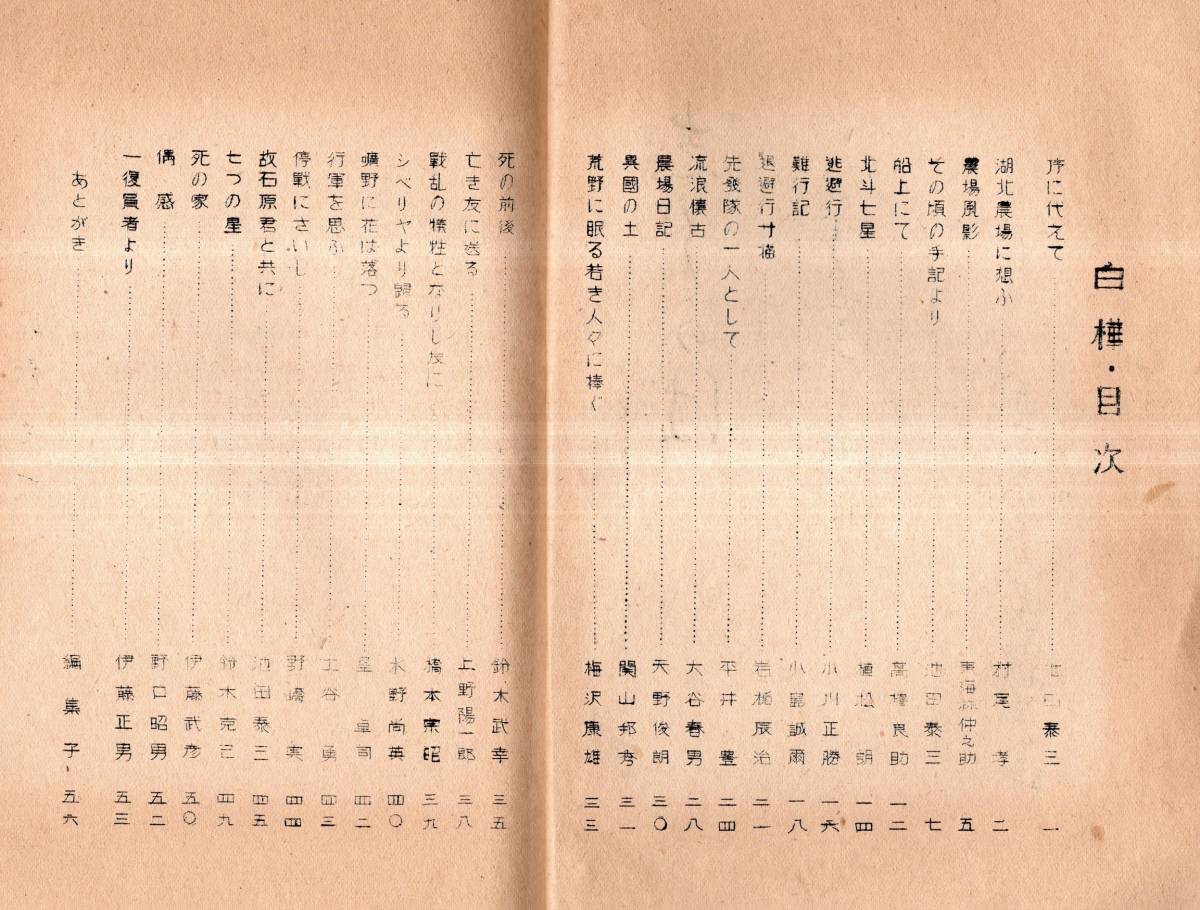 白樺・目次
序に代えて 池田泰三 一
湖北農場に想ふ 村尾 孝 二
農場風影 東海林仲之助 五
その頃の手記より 池田泰三 七
船上にて 高橋良助 一二
北斗七星 植松 朗 一四
逃避行 小川正勝 一六
難行記 小島誠爾 一八
退避行寸描 岩楯辰治 二一
先發隊の一人として 平井 豊 二四
流浪懐古 大谷春男 二八
農場日記 天野俊朗 三〇
異國の土 関山邦彦 三一
荒野に眠る若き人々に棒ぐ 梅沢康雄 三三
死の前後 鈴木武幸 三五
亡き友に送る 上野陽一郎 三八
戰乱の犠牲となりし友に 橋本宗昭 三九
シベリヤより歸る 水野尚英 四〇
曠野に花は落つ 星 卓司 四二
行軍を思ふ 土谷 勇 四三
停戰にさいし 野崎 実 四四
故石原君と共に 池田泰三 四五
七つの星 鈴木克己 四九
死の家 伊藤武彦 五〇
偶感 野口昭男 五二
一復員者より 伊藤正男 五三
あとがき 編集子 五六